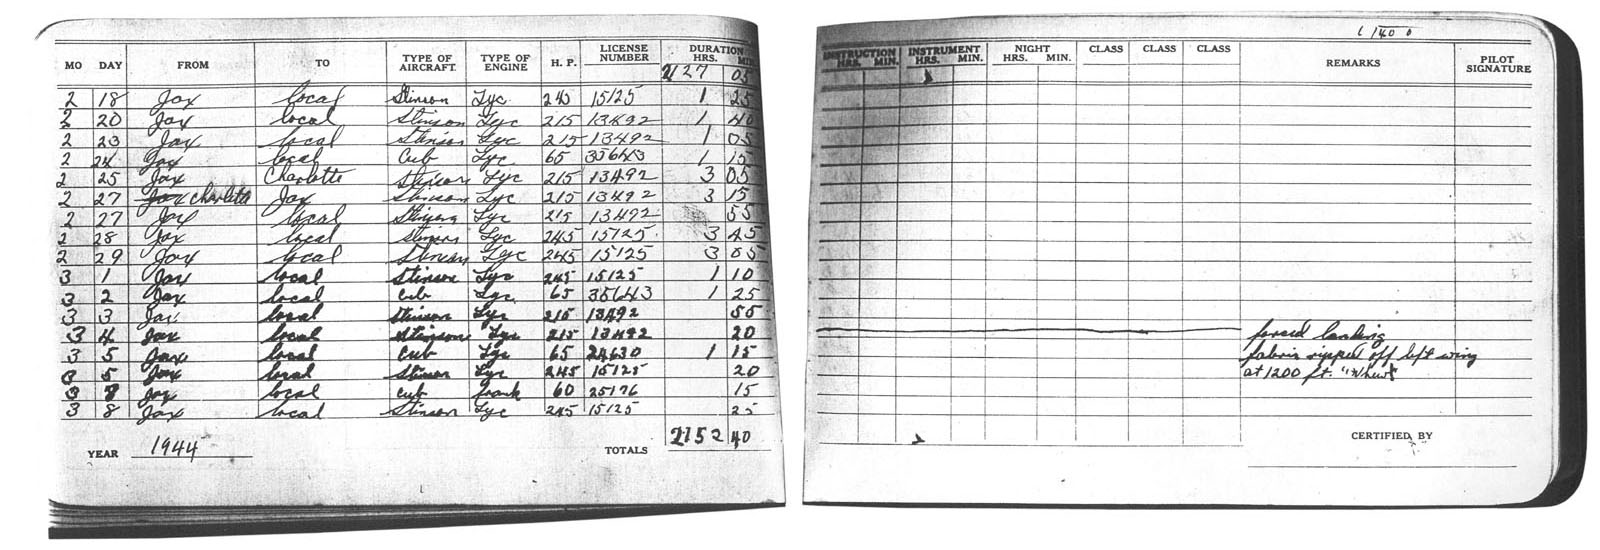 MO DAY FROM TO TYPE OF AIRCRAFT. TYPE OF ENGINE H. P. LICENSE NUMBER DURATION HRS. MIN.
2127 05
2 18 Jax local Stinson Lyc 245 15125 1 25
2 20 Jax local Stinson Lyc 215 13492 1 40
2 23 Jax local Stinson Lyc 215 13492 1 05
2 24 Jax local Cub Lyc 65 35643 1 15
2 25 Jax Charlotte Stinson Lyc 215 13492 3 05
2 27 Jax Charlotte Jax Stinson Lyc 215 13492 3 15
2 27 Jax local Stinson Lyc 215 13492 55
2 28 Jax local Stinson Lyc 245 15125 3 45
2 29 Jax local Stinson Lyc 245 15125 3 05
3 1 Jax local Stinson Lyc 245 15125 1 10
3 2 Jax local Cub Lyc 65 35643 1 25
3 3 Jax local Stinson Lyc 215 13492 55
3 4 Jax local Stinson Lyc 215 13492 20
3 5 Jax local Cub Lyc 65 24630 1 15
3 5 Jax local Stinson Lyc 245 15125 20
3 Jax local Cub frank 60 25176 15
3 8 Jax local Stinson Lyc 245 15125 25
YEAR 1944 TOTALS 2152 40
INSTRUCTION HRS. MIN. INSTRUMENT HRS. MIN. NIGHT HRS. MIN. CLASS CLASS CLASS REMARKS PILOT SIGNATURE
forced landing
fabric ripped off left wing
at 1200 ft. "Whew"
CERTIFIED BY